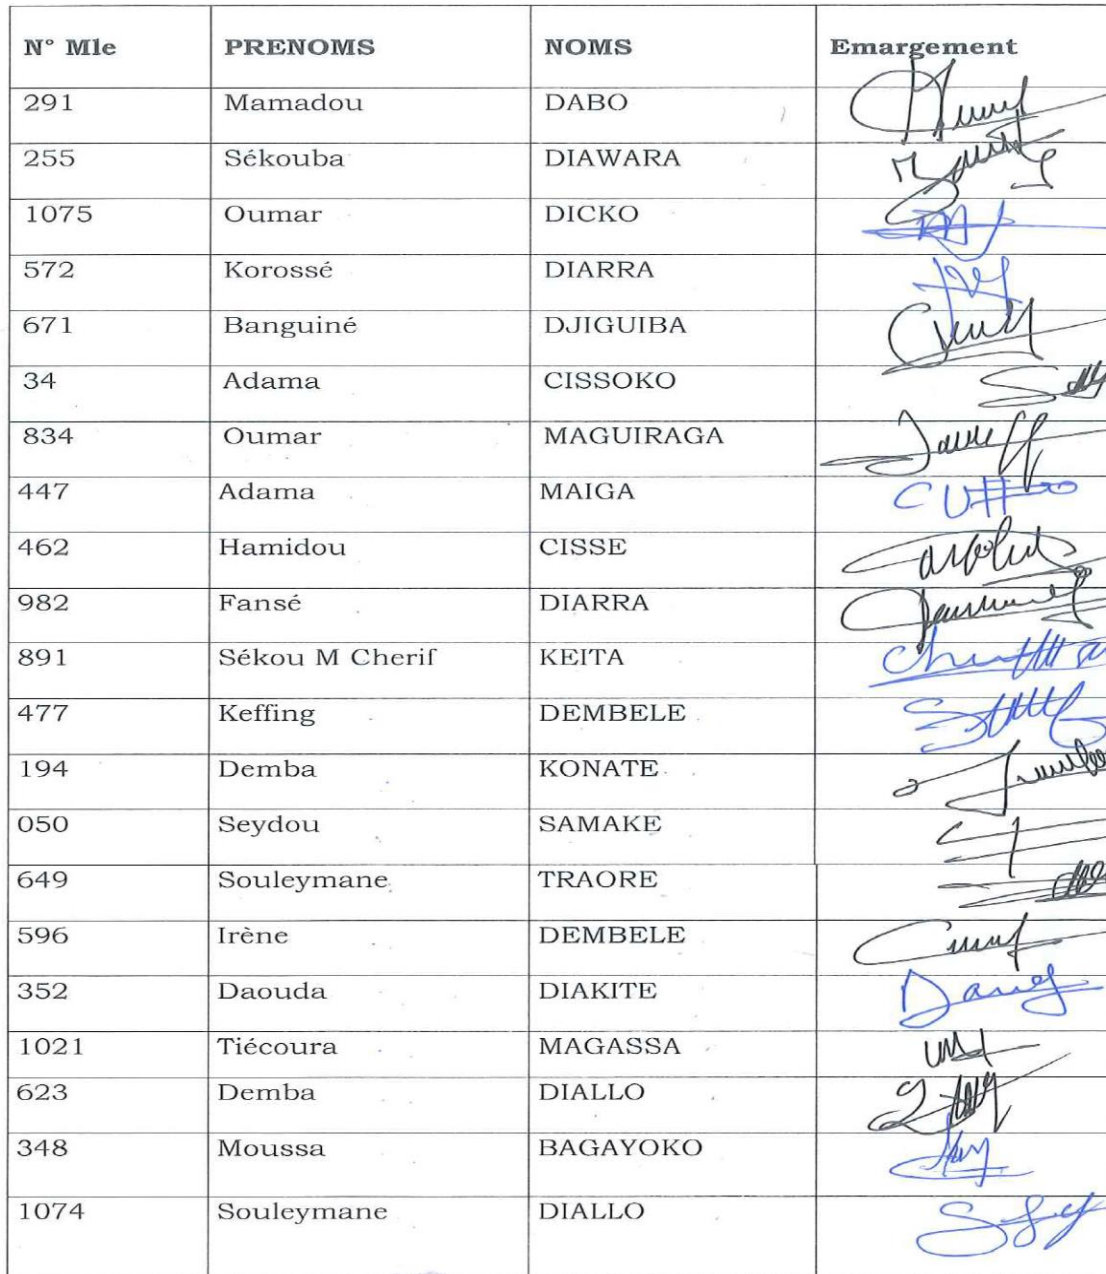 N° Mle PRENOMS NOMS Emargement
291 Mamadou DABO
255 Sékouba DIAWARA
1075 Oumar DICKO
572 Korossé DIARRA
671 Banguiné DJIGUIBA
34 Adama CISSOKO
834 Oumar MAGUIRAGA
447 Adama MAIGA
462 Hamidou CISSE
982 Fansé DIARRA
891 Sékou M Cherif KEITA
477 Keffing DEMBELE
194 Demba KONATE
050 Seydou SAMAKE
649 Souleymane TRAORE
596 Irène DEMBELE
352 Daouda DIAKITE
1021 Tiécoura MAGASSA
623 Demba DIALLO
348 Moussa BAGAYOKO
1074 Souleymane DIALLO